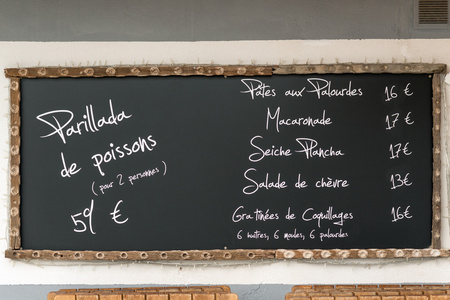 Parillada
de poissons
(pour 2 personnes)
59 €
Pâtes aux Palourdes 16 €
Macaronade 17 €
Seiche Plancha 17€
Salade de chèvre 13€
Gratinées de Coquillages 16€
6 huîtres, 6 moules, 6 palourdes